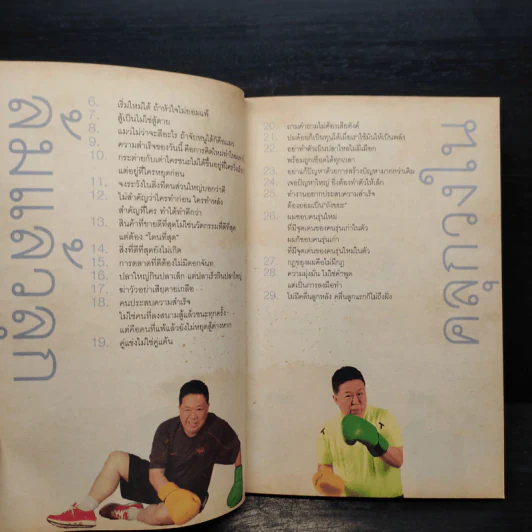 ล้มแล้วลุก
6. เริ่มใหม่ได้ ถ้าหัวใจไม่ยอมแพ้
7. สู้เป็นไม่ใช่สู้ตาย
8. แมวไม่ว่าจะสีอะไร ถ้าจับหนูได้ก็คือแมว
9. ความสำเร็จของวันนี้ คือการคิดใหม่ทำใหม่
10. กระต่ายกับเต่าใครชนะไม่ได้ขึ้นอยู่ที่ใครวิ่งเร็ว
แต่อยู่ที่ใครหยุดก่อน
11. จงระวังในสิ่งที่คนส่วนใหญ่บอกว่าดี
12. ไม่สำคัญว่าใครทำก่อน ใครทำหลัง
สำคัญที่ใคร ทำได้ดีกว่า
13. สินค้าที่ขายดีที่สุดไม่ใช่นวัตกรรมที่ดีที่สุด
แต่ต้อง "โดนที่สุด"
14. สิ่งที่ดีที่สุดยังไม่เกิด
15. การตลาดที่ดีต้องไม่มีดอกจันท
16. ปลาใหญ่กินปลาเล็ก แต่ปลาเร็วกินปลาใหญ่
17. ฆ่าวัวอย่าเสียดายเกลือ
18. คนประสบความสำเร็จ
ไม่ใช่คนที่ลงสนามสู้แล้วชนะทุกครั้ง
แต่คือคนที่แพ้แล้วยังไม่หยุดสู้ต่างหาก
19. คู่แข่งไม่ใช่คู่แค้น
คลุกวงใน
20. ถามคำถามไม่ต้องเสียตังค์
21. ปมด้อยก็เป็นทุนได้เมื่อเราใช้มันให้เป็นพลัง
22. อย่าทำตัวเป็นปลาไหลไม่มีเงือก
พร้อมถูกเชือดได้ทุกเวลา
23. อย่าแก้ปัญหาด้วยการสร้างปัญหามากกว่าเดิม
24. เจอปัญหาใหญ่ ยิ่งต้องทำตัวให้เล็ก
25. ทำงานอยากประสบความสำเร็จ
ต้องยอมเป็น
26. ผมชอบคนรุ่นใหม่
ที่มีจุดเด่นของคนรุ่นเก่าในตัว
ผมก็ชอบคนรุ่นเก่า
ที่มีจุดเด่นของคนรุ่นใหม่ในตัว
27. กฎของผมคือไม่มีกฎ
28. ความมุ่งมั่น ไม่ใช่คำพูด
แต่เป็นการลงมือทำ
29. ไม่มีคลื่นลูกหลัง คลื่นลูกแรกก็ไม่ถึงฝั่ง